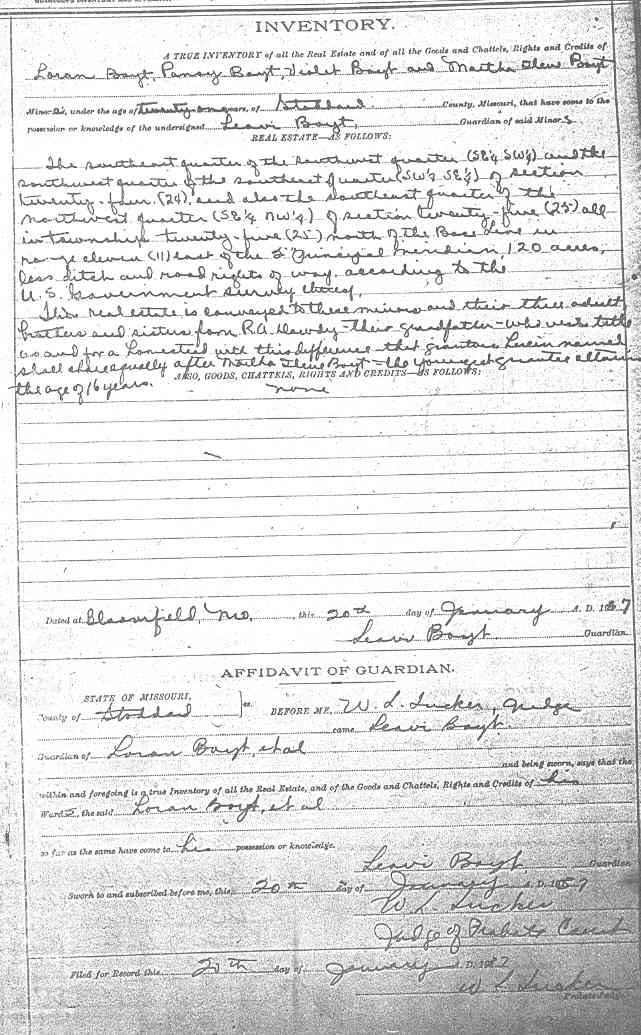 INVENTORY.
A TRUE INVENTORY of all the Real Estate and of all the Goods and Chattels, Rights and Credits of
Loran Boyt, Pansy Boyt, Violet Boyt and Martha Ilene Boyt
Minors, under the age of twenty-one years, of Stoddard County, Missouri, that have come to the
possession or knowledge of the undersigned Leavi Boyt, Guardian of said Minors
REAL ESTATE—AS FOLLOWS:
The southeast quarter of the southwest quarter (SE¼ SW¼) and the
southwest quarter of the southeast quarter (SW¼ SE¼) of section
twenty-four (24), and also the southeast quarter of the
northwest quarter (SE¼ NW¼) of section twenty-five (25) all
in township twenty-five (25) north of the Base line in
range eleven (11) east of the 5" Principal Meridian, 120 acres,
less ditch and road rights of way, according to the
U.S. Government survey thereof.
This real estate is conveyed to these minors and their three adult
brothers and sisters from R.A. their grandfather - who vests title
as and for a homestead with this difference - that grantors herein named
shall share equally after Martha Ilene Boyt - the youngest grantee attains
the age of 16 years.
ALSO, GOODS, CHATTELS, RIGHTS AND CREDITS—AS FOLLOWS:
none
Dated at Bloomfield, Mo. this 20th day of January A. D. 19 7
Leavi Boyt Guardian.
AFFIDAVIT OF GUARDIAN.
STATE OF MISSOURI,
County of Stoddard } ss. BEFORE ME, W. L. Tucker, Judge
came Leavi Boyt
Guardian of Loran Boyt, et al
and being sworn, says that the
within and foregoing is a true Inventory of all the Real Estate, and of the Goods and Chattels, Rights and Credits of his
Wards, the said Loran Boyt, et al
so far as the same have come to his possession or knowledge.
Leavi Boyt Guardian
Sworn to and subscribed before me, this 20th day of January A. D. 19 7
W. L. Tucker
Judge of Probate Court
Filed for Record this 20th day of January A. D. 19 7
W L Tucker
Probate Judge.